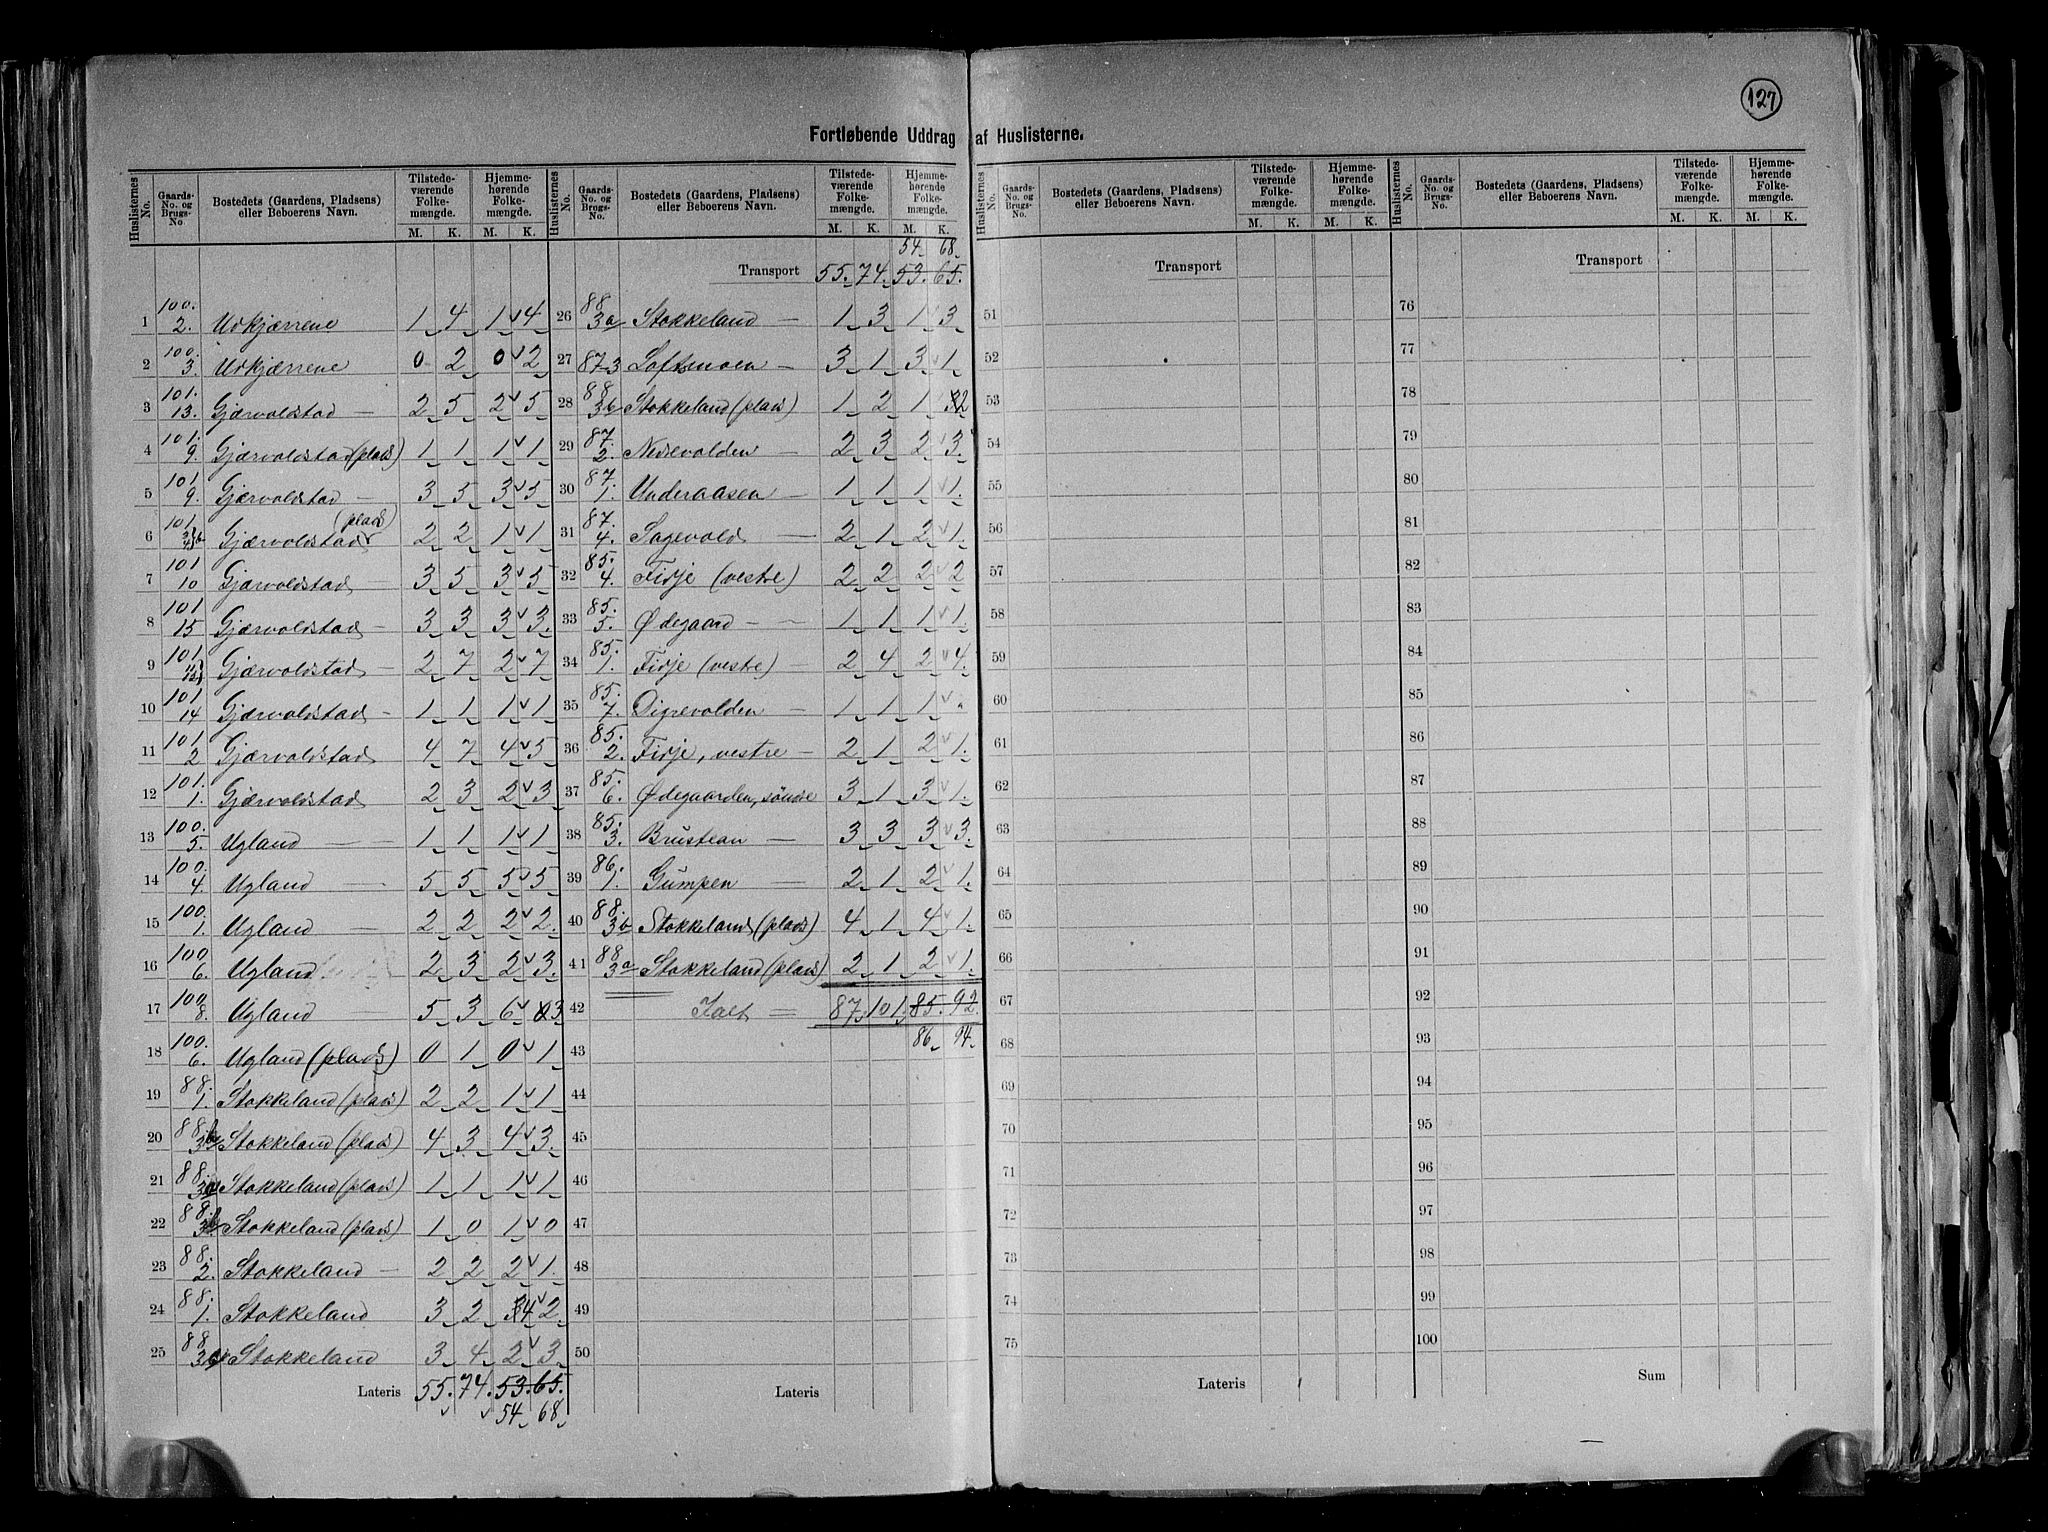 127
Fortløbende Uddrag af Huslisterne.
Huslisternes No. Gaards-No. og Brugs-No. Bostedets (Gaardens, Pladsens) eller Beboerens Navn. Tilstedeværende Folkemængde. M. K. Hjemmehørende Folkemængde. M. K.
1 100. 2. Udkjærrene 1 4 1 4
2 100. 3. Udkjærrene 0 2 0 2
3 101. 13. Gjærvoldstad 2 5 2 5
4 101. 9. Gjærvoldstad (plads) 1 1 1 1
5 101 9. Gjærvoldstad 3 5 3 5
6 101 Gjærvoldstad (plads) 2 2 1 1
7 101 10 Gjærvoldstad 3 5 3 5
8 101 15 Gjærvoldstad 3 3 3 3.
9 101 Gjærvoldstad 2 7 2 7
10 101 14 Gjærvoldstad 1 1 1 1
11 101 2 Gjærvoldstad 4 7 4 5
12 101. 1. Gjærvoldstad 2 3 2 3
13 100. 5. Ugland 1 1 1 1
14 100. 4. Ugland 5 5 5 5
15 100. 1. Ugland 2 2 2 2.
16 100 6. Ugland 2 3 2 3.
17 100. 8. Ugland 5 3 6 3
18 100. 6. Ugland (plads) 0 1 0 1
19 88. 1. Stokkeland (plads) 2 2 1 1
20 88. 3b Stokkeland (plads) 4 3 4 3.
21 88. 3a Stokkeland (plads) 1 1 1 1
22 88. 3b Stokkeland (plads) 1 0 1 0
23 88. 2. Stokkeland 2 2 2 1.
24 88. 1. Stokkeland 3 2 4 2
25 88 Stokkeland 3 4 2 3
Lateris 55. 74. 53. 65.
54 68
Huslisternes No. Gaards-No. og Brugs-No. Bostedets (Gaardens, Pladsens) eller Beboerens Navn. Tilstedeværende Folkemængde. M. K. Hjemmehørende Folkemængde. M. K.
54 68
Transport 55. 74. 53. 65.
26 88 3a Stokkeland 1 3 1 3
27 87 3 Loftsmoen 3 1 3 1
28 88 3b Stokkeland (plads) 1 2 1 2
29 87. 2. Nedevolden 2 3 2 3
30 87. 1. Underaasen 1 1 1 1.
31 87. 4. Sagevold 2 1 2 1.
32 85. 4. Fidje (vestre) 2 2 2 2
33 85. 5. Ødegaard 1 1 1 1.
34 85. 1. Fidje (vestre) 2 4 2 4.
35 85. 7. Digrevolden 1 1 1
36 85. 2. Fidje, vestre 2 1 2 1.
37 85. 6. Ødegaarden, søndre 3 1 3 1.
38 85. 3. Brustean 3 3 3 3.
39 86. 1. Gumpen 2 1 2 1.
40 88. 3b Stokkeland (plads) 4 1 4 1.
41 88 3a Stokkeland (plads) 2 1 2 1.
42 Ialt 87 101 85. 92.
86 94
43
44
45
46
47
48
49
50
Lateris
Huslisternes No. Gaards-No. og Brugs-No. Bostedets (Gaardens, Pladsens) eller Beboerens Navn. Tilstedeværende Folkemængde. M. K. Hjemmehørende Folkemængde. M. K.
Transport
51
52
53
54
55
56
57
58
59
60
61
62
63
64
65
66
67
68
69
70
71
72
73
74
75
Lateris
Huslisternes No. Gaards-No. og Brugs-No. Bostedets (Gaardens, Pladsens) eller Beboerens Navn. Tilstedeværende Folkemængde. M. K. Hjemmehørende Folkemængde. M. K.
Transport
76
77
78
79
80
81
82
83
84
85
86
87
88
89
90
91
92
93
94
95
96
97
98
99
100
Sum